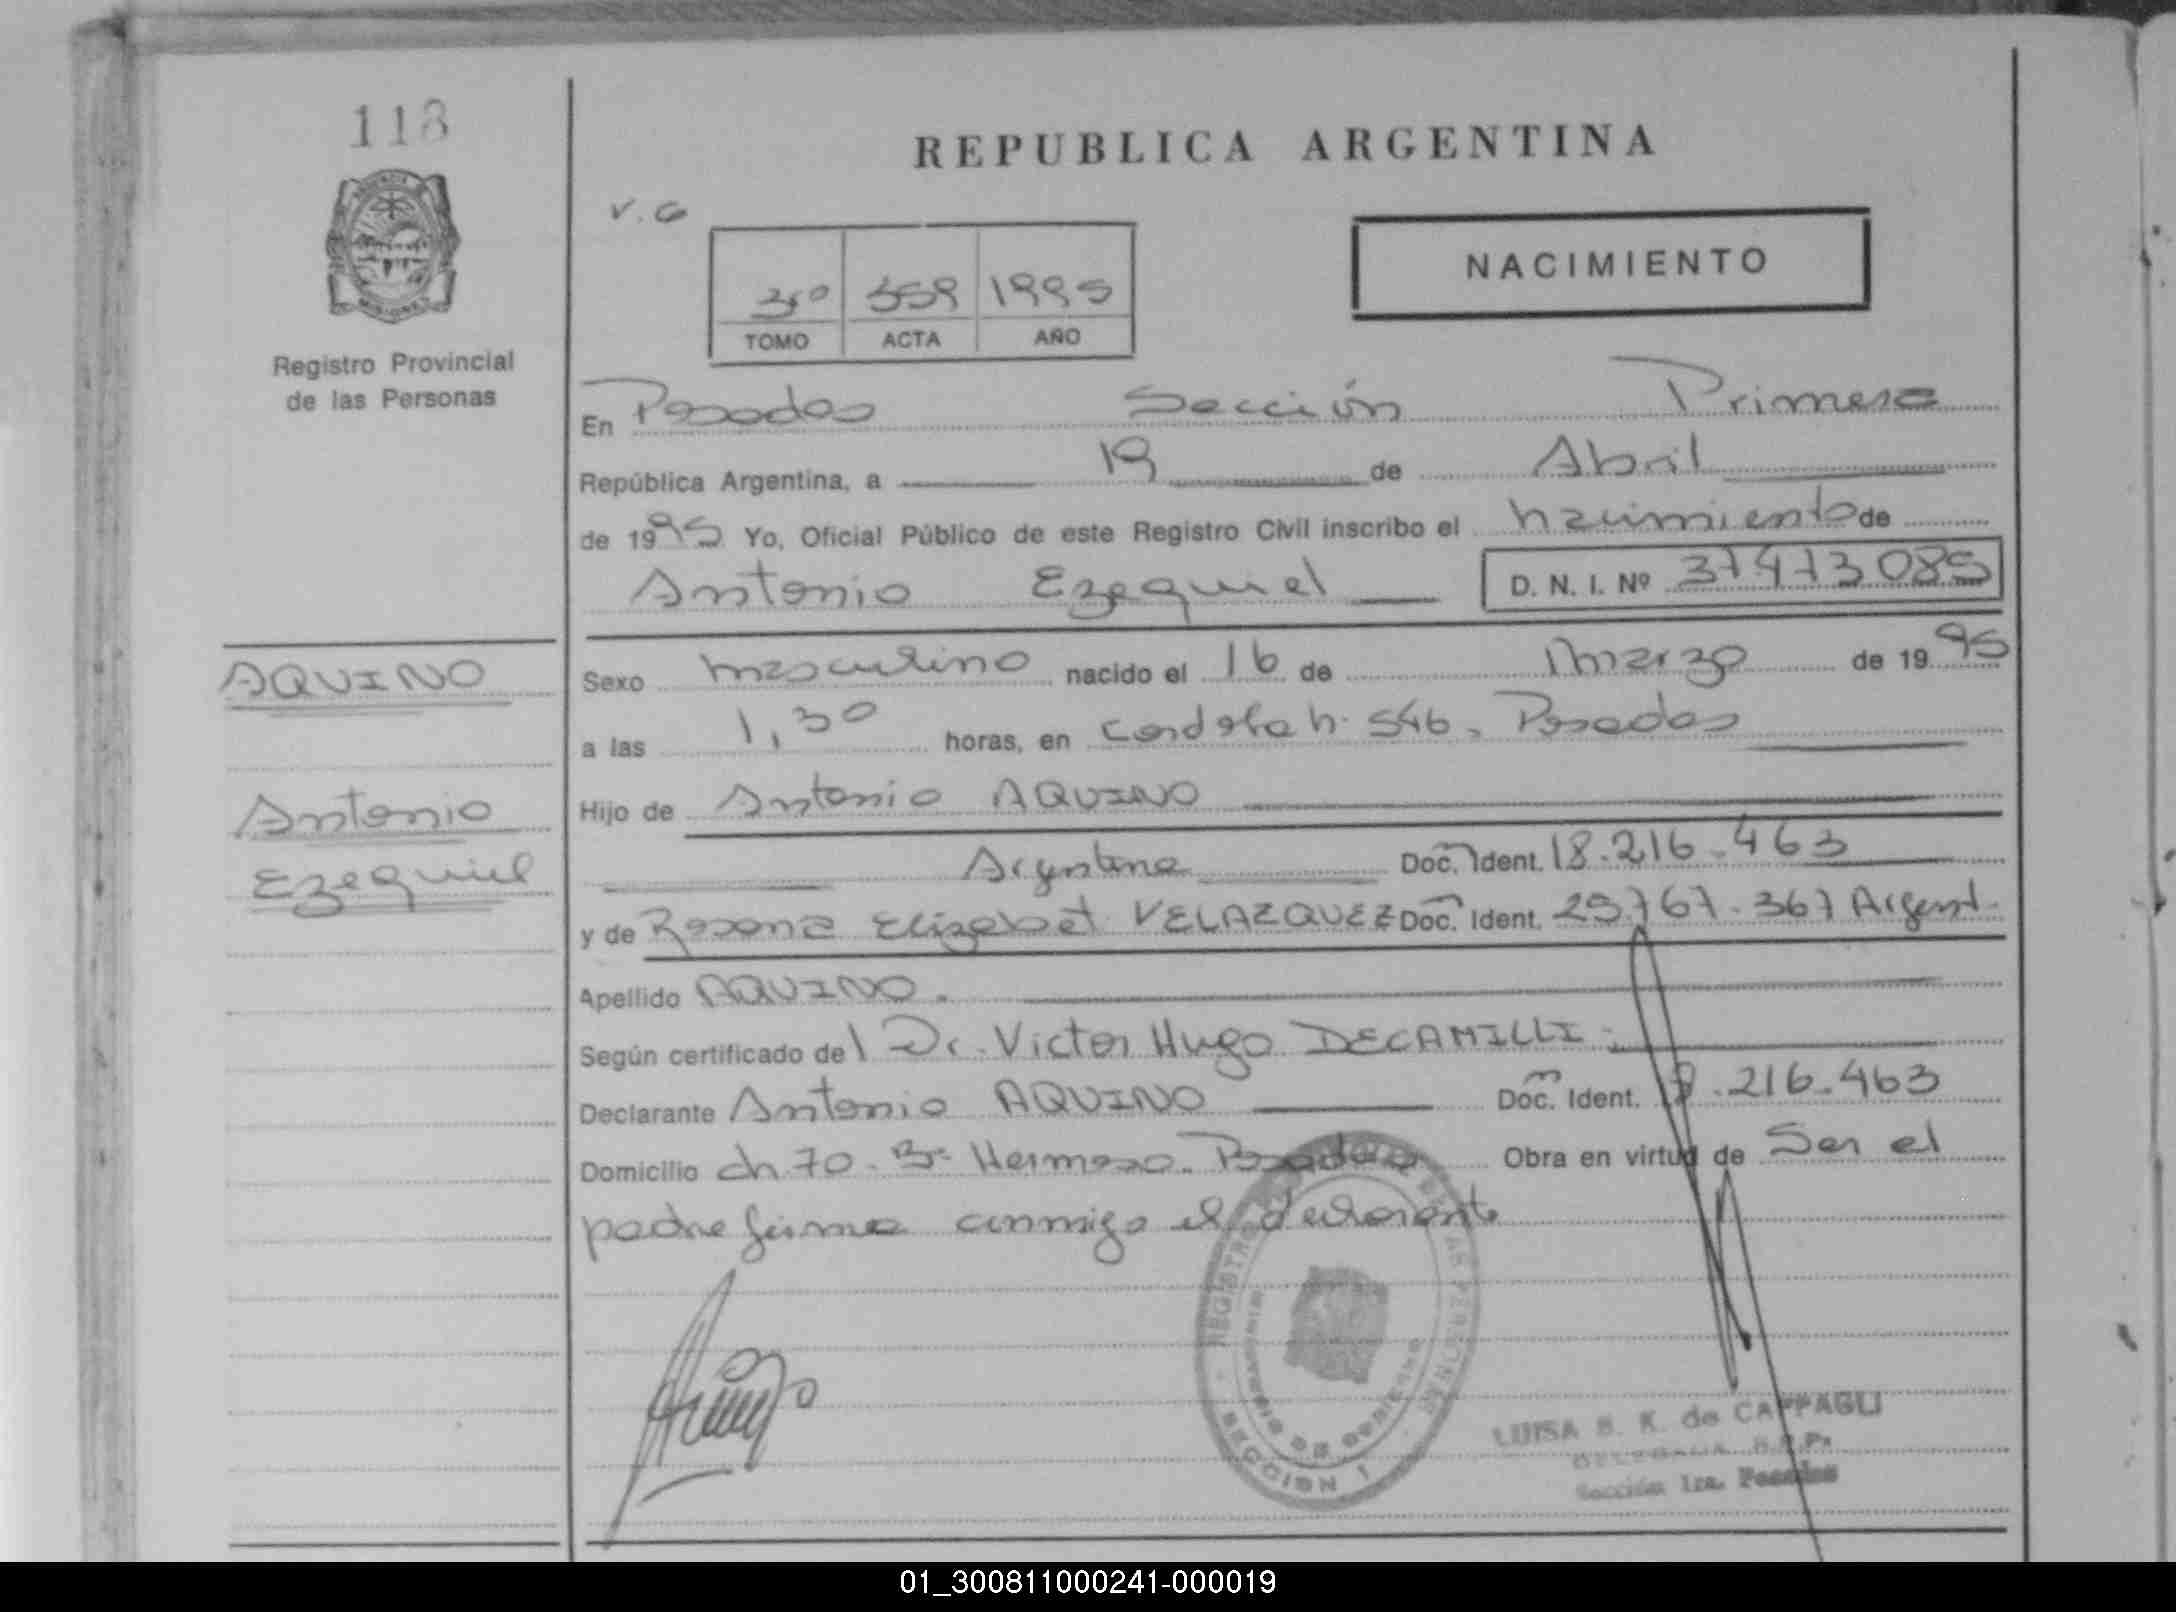 118
REPUBLICA ARGENTINA
V. G
NACIMIENTO
3º 359 1995
TOMO ACTA AÑO
Registro Provincial
de las Personas
En Posadas Sección Primera
República Argentina, a 19 de Abril
de 1995 Yo, Oficial Público de este Registro Civil inscribo el nacimiento de
Antonio Ezequiel D. N. I. Nº 37473085
AQUINO
Antonio
Ezequiel
Sexo masculino nacido el 16 de marzo de 1995
a las 1,30 horas, en h. 546. Posadas
Hijo de Antonio AQUINO
Argentina Doc. Ident. 18.216.463
y de Rosana Elizabet VELAZQUEZ Doc. Ident. 25.767.367 Argent.
Apellido AQUINO.
Según certificado del Dr. Victor Hugo DECAMILLI.
Declarante Antonio AQUINO Doc. Ident. 18.216.463
Domicilio ch 70. Bº Hermoso. Posadas Obra en virtud de Ser el
padre firma conmigo el declarante
REGISTRO DE LAS PERSONAS
PROVINCIA DE MISIONES
SECCION 1
LUISA S. K. de CAPPAGLI
DELEGADA R.P.P.
Sección 1ra. Posadas
01_300811000241-000019